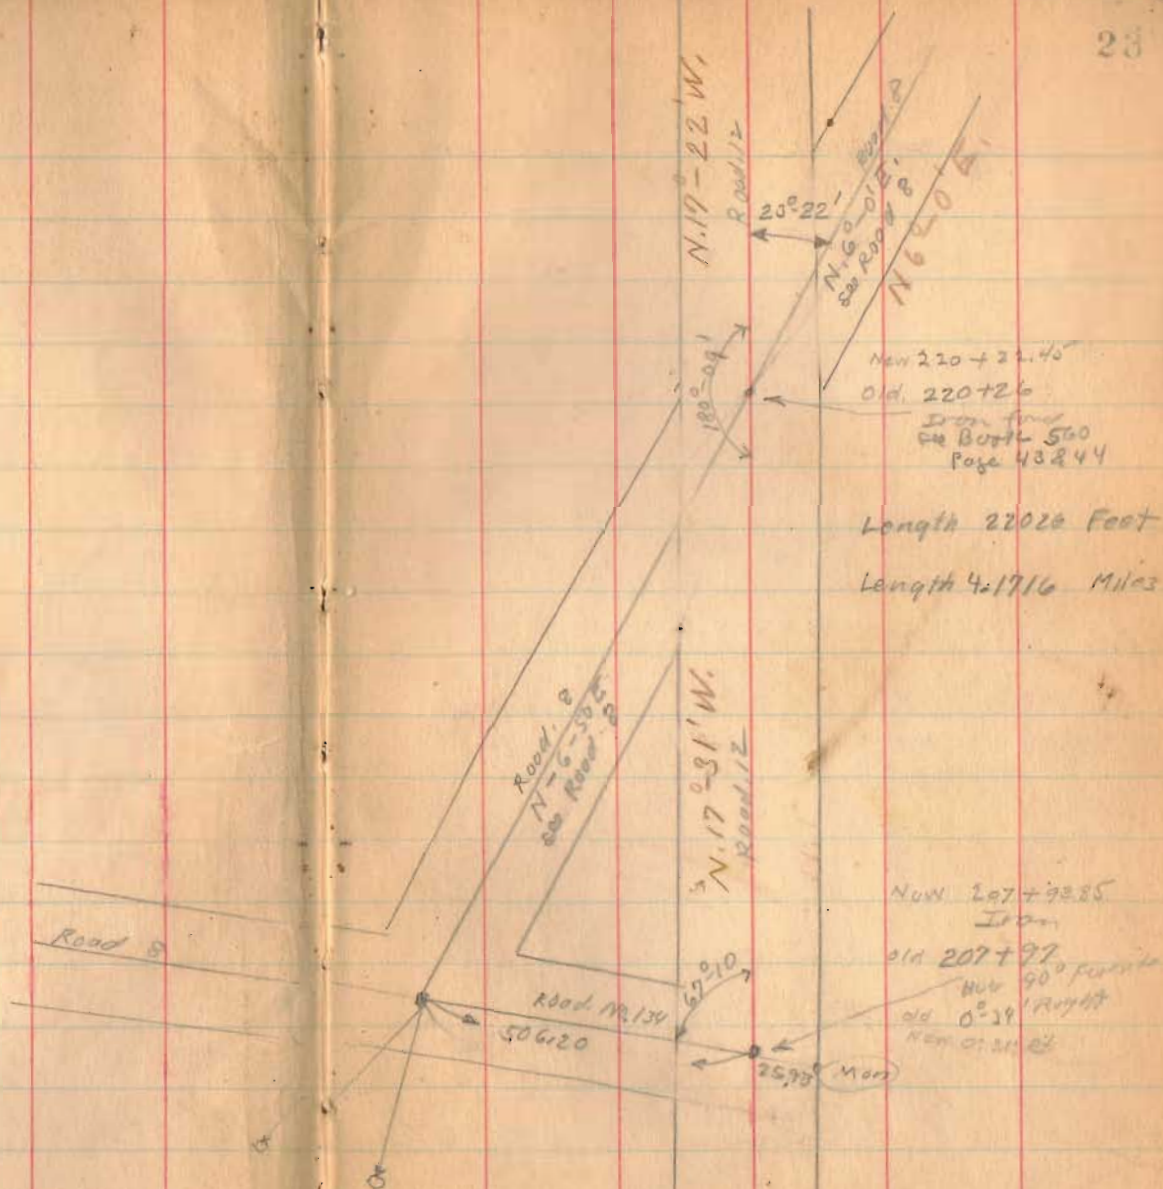 23
N.17°-22'W.
Road 12
20°-22'
N.6°-0'E.
see Road 8
N 6°-0 E.
180°-09'
New 220+22.45
Old. 220+26
Iron found
see Book 560
Page 43 & 44
Length 22026 Feet
Length 4.1716 Miles
Road. 8
N-6-50 E
see Road 8
N.17°-31'W.
Road 12
New 207+93.85
Iron
Old 207+97
Hub 90°
old 0°-34' Right
Road 8
67°-10
Road. No. 134
506.20
25.93' Mon